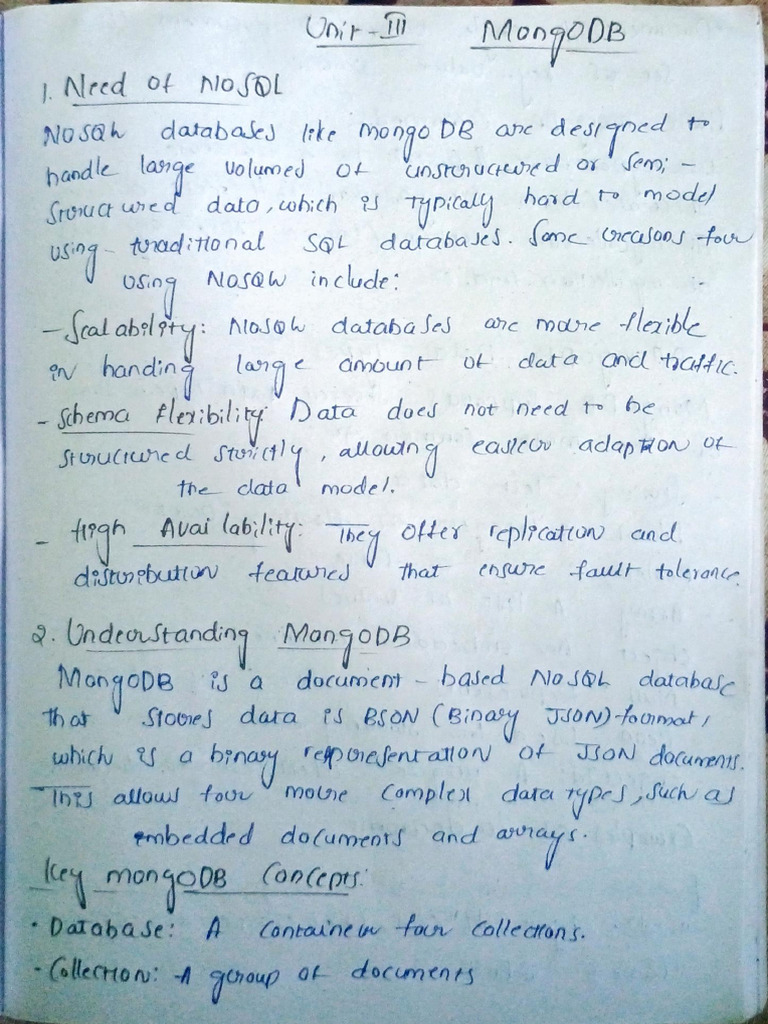 Unit - III MongoDB
1. Need of NOSQL
NOSQL databases like mongo DB are designed to
handle large volumed of unstructured or semi -
structured data, which is typically hard to model
using traditional SQL databases. Some reasons for
using NOSQL include:
- Scalability: NOSQL databases are more flexible
in handing large amount of data and traffic.
- Schema flexibility: Data does not need to be
structured strictly, allowing easier adaption of
the data model.
- High Availability: They offer replication and
distribution features that ensure fault tolerance.
2. Understanding MongoDB
MongoDB is a document - based NOSQL database
that stores data is BSON (Binary JSON) format,
which is a binary representation of JSON documents.
This allows for more complex data types, such as
embedded documents and arrays.
Key mongoDB Concepts:
• Database: A container for collections.
- Collection: A group of documents